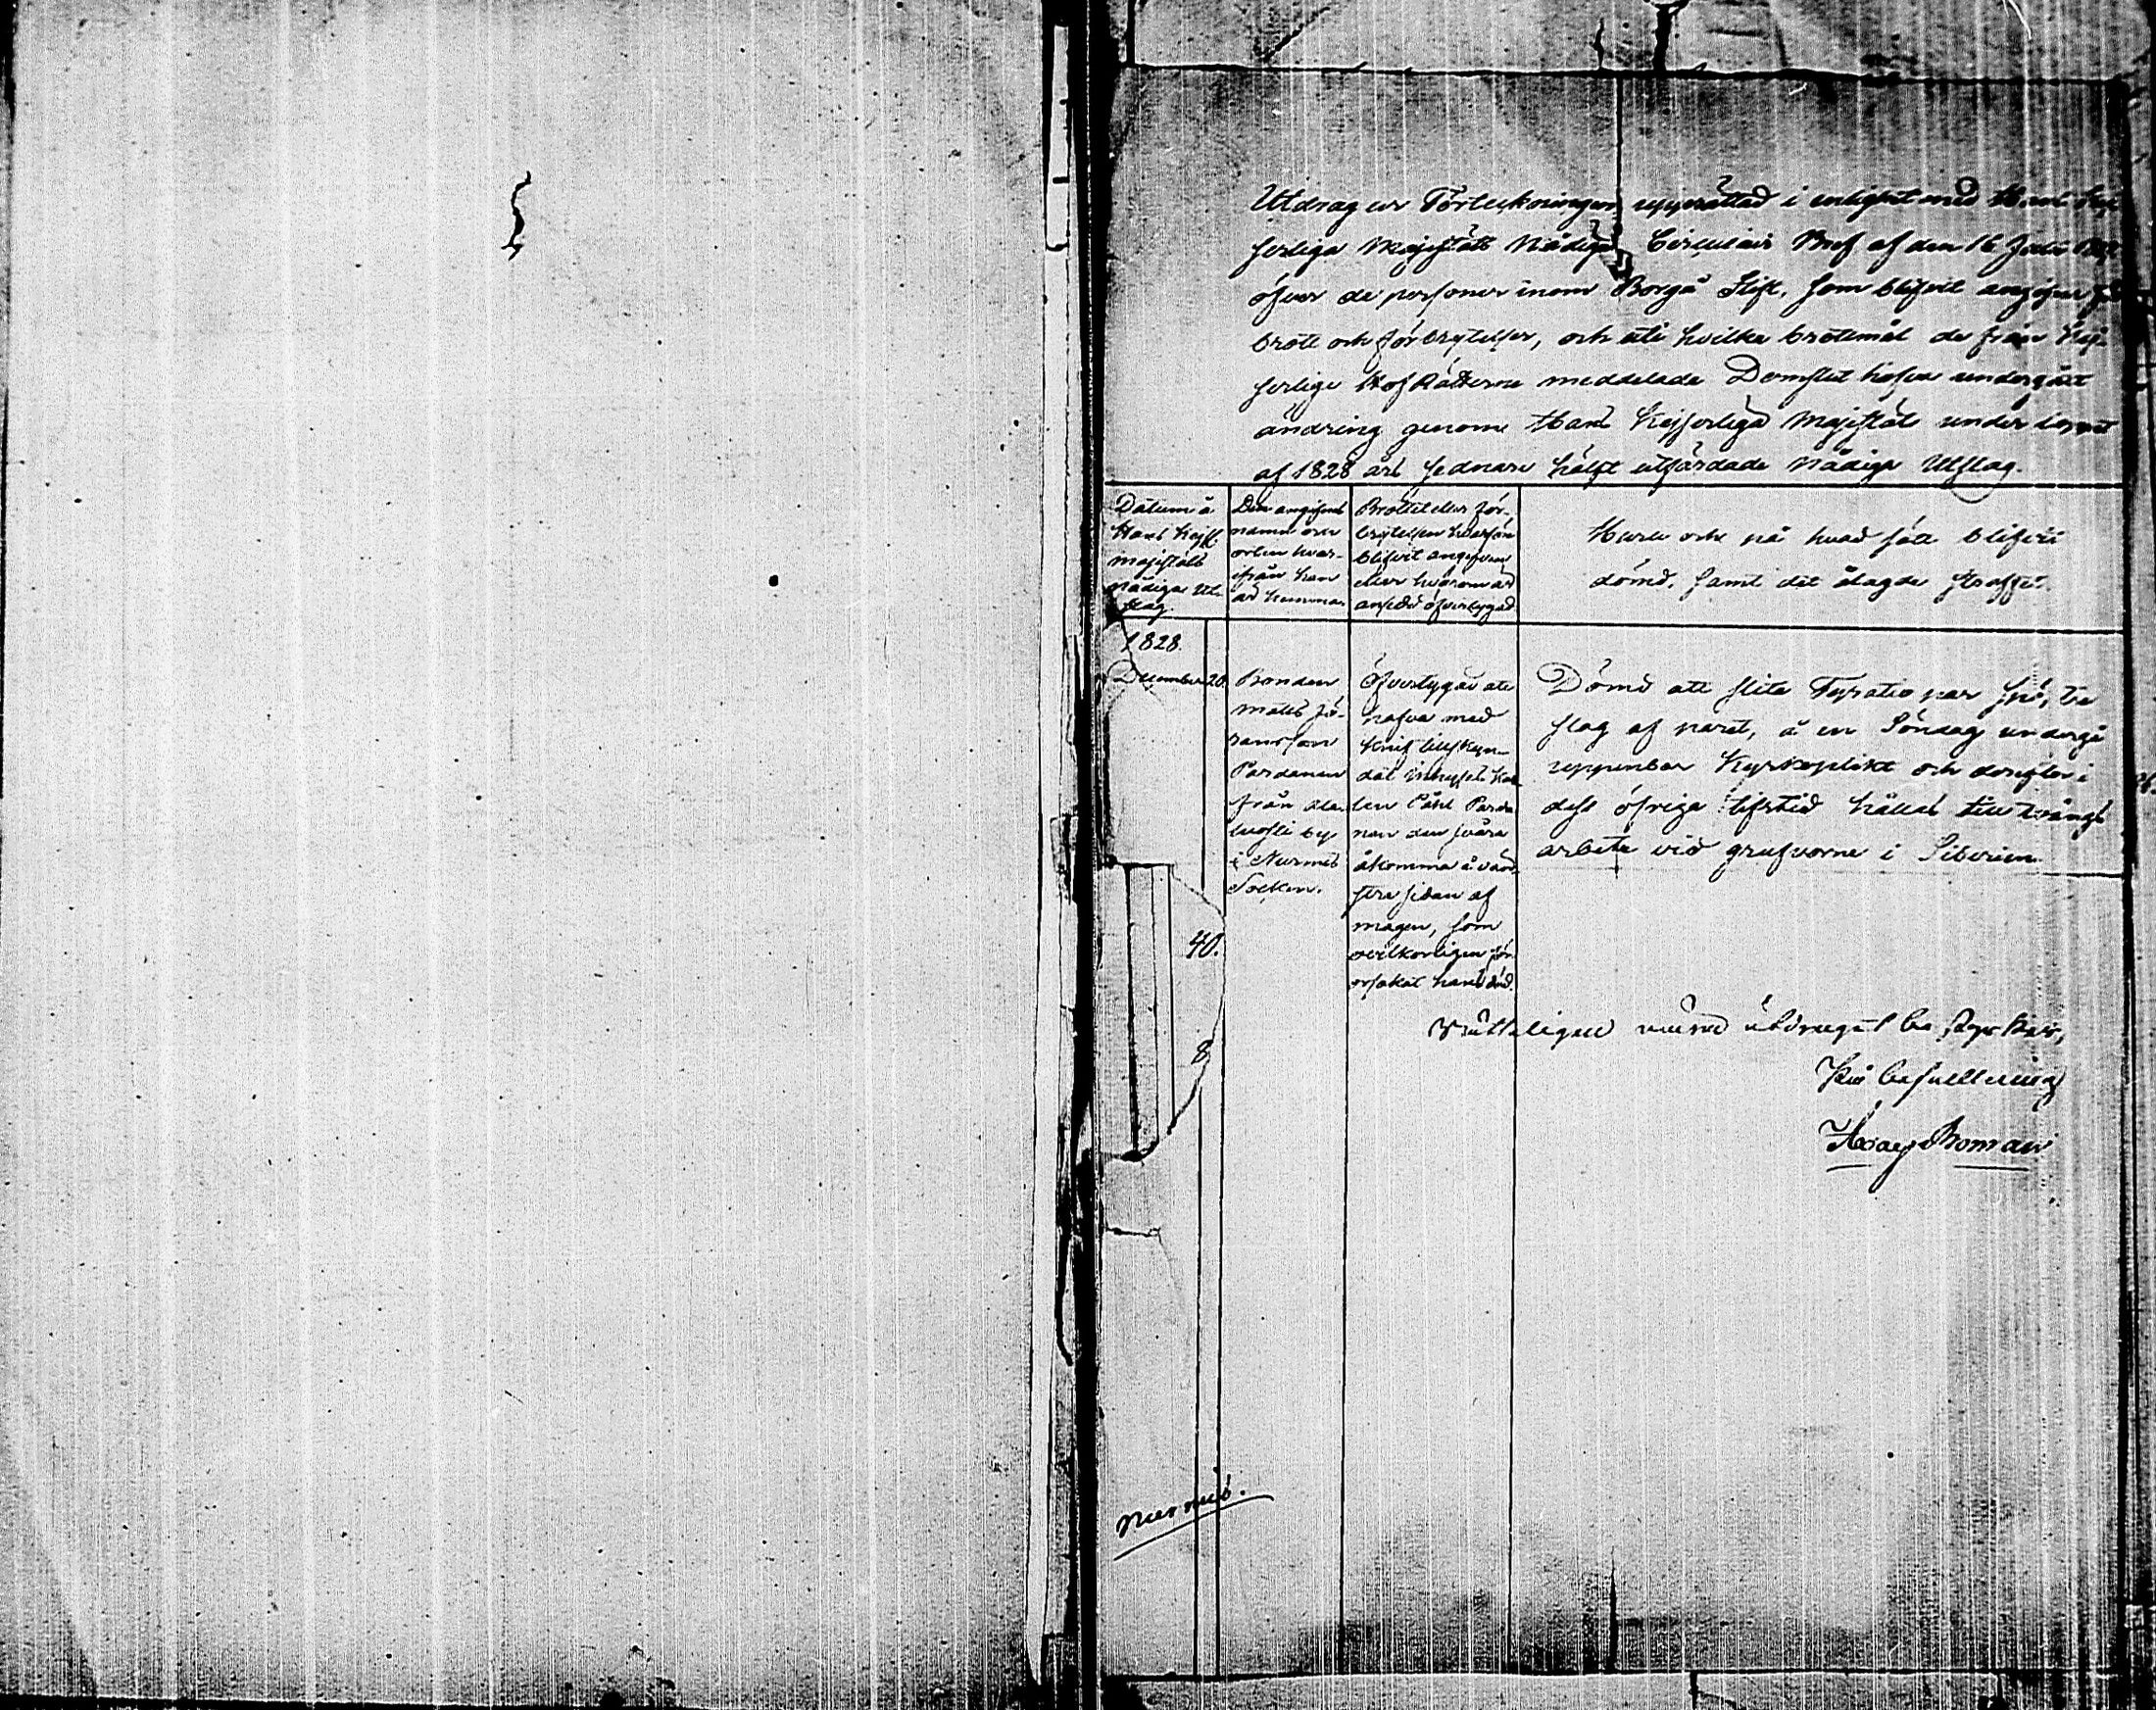 Utdrag ur Förteckningen upprättad i enlighet med Hans Kej-
serliga Majestäts Nådiga Circulair Bref af den 16 Julii
öfver de personer inom Borgå Stift, som blifvit angifne för
brott och förbrytelser, och uti hvilka brottmål de från Kej-
serlige HofRätterne meddelade Domslut hafva undergått
ändring genom Hans Kejserliga Majestäts under loppet
af 1828 års sednare hälft utfärdade Nådiga Utslag.
Datum å
Hans Kejs.
Majestäts
Nådiga Ut-
slag.
Den angifnes
namn och
orten hvar-
ifrån han
är kommen
Brottet eller för-
brytelsen hvarföre
blifvit angifven
eller hvarom är
ansedd öfvertygad
Huru och på hvad sätt blifvit
dömd, samt det ålagde straffet.
1828.
December 20.
Bonden
Matts Jö-
ransson
Pardanen
från
by
i Nurmis
Socken.
Öfvertygad att
hafva med
knif tillskyn-
dat Inhyses Kar-
len Påhl Parda-
nen den svåra
åkomma å vän-
stra sidan af
magen, som
ovilkorligen för-
orsakat hans död.
Dömd att slita Fyratio par spö, tre
slag af paret, å en Söndag undergå
uppenbar Kyrkoplikt och derefter i
dess öfriga lifstid hållas till tvångs
arbete vid grufvorne i Siberien.
40.
8
Rätteligen vara utdraget bestyrker,
På befallning
Isac Boman
Nurmis.